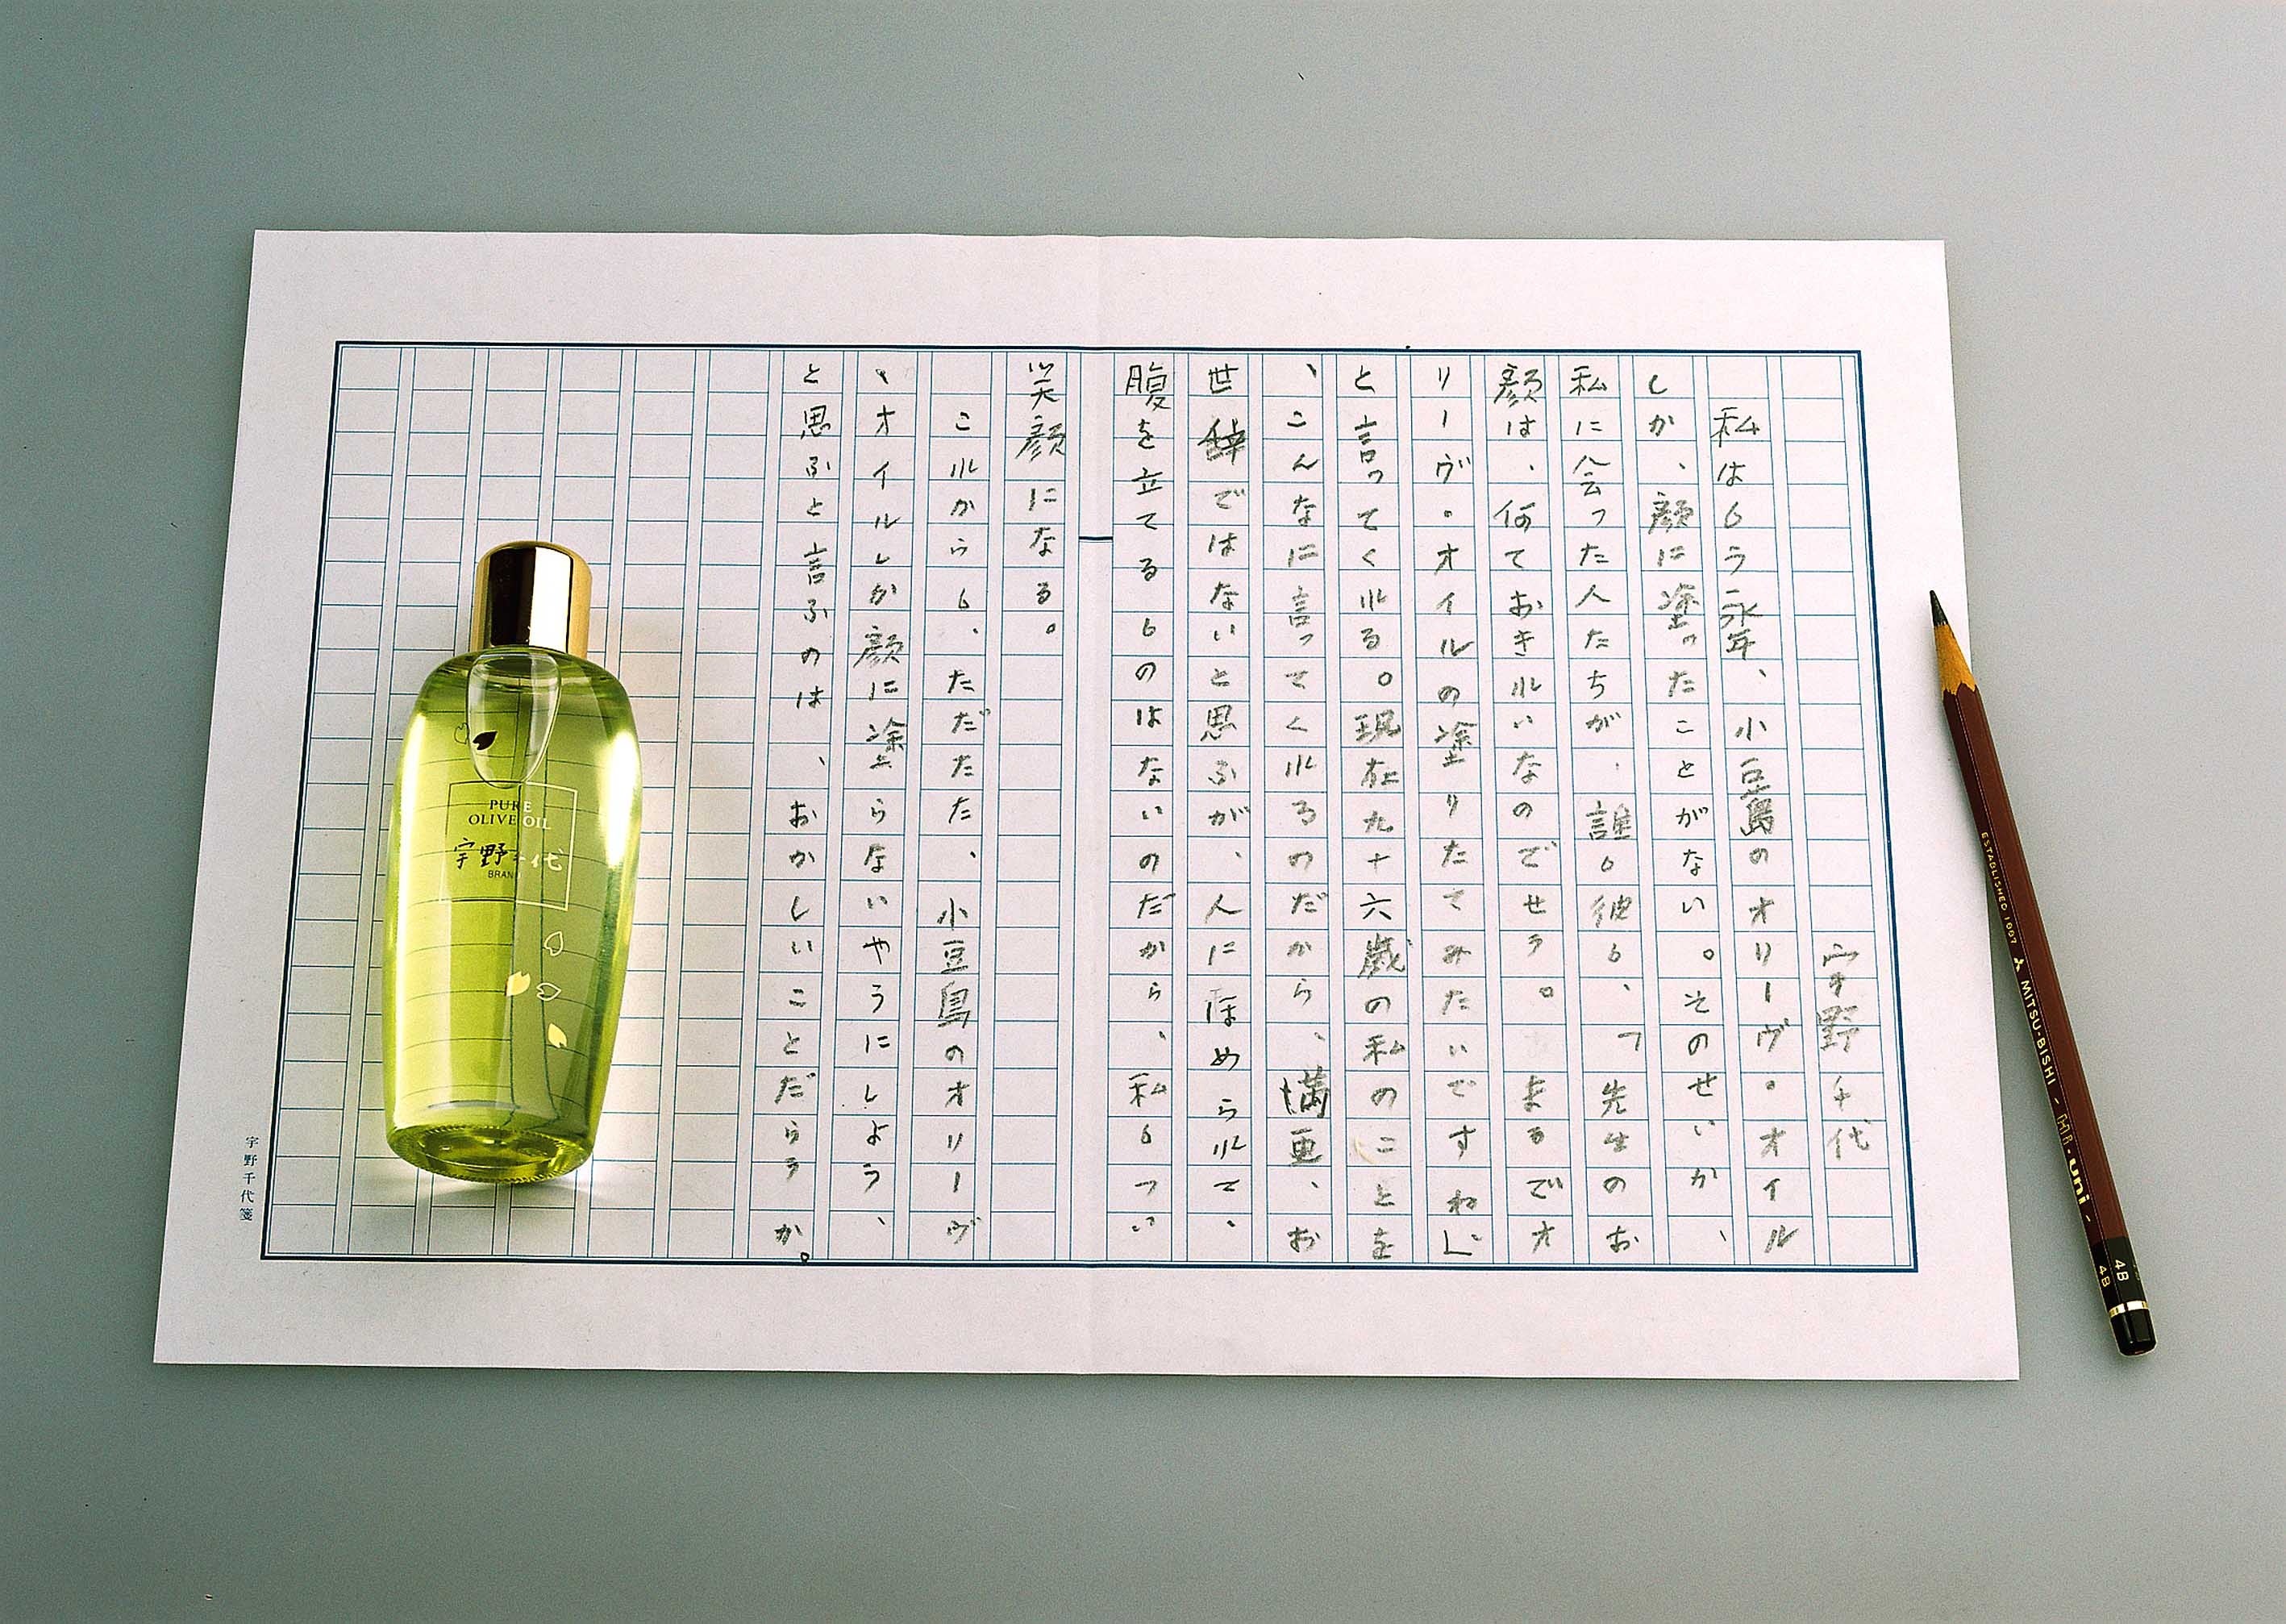 宇野千代
私はもう永年、小豆島のオリーヴ・オイル
しか、顔に塗ったことがない。そのせいか、
私に会った人たちが、誰も彼も、「先生のお
顔は、何ておきれいなのでせう。まるでオ
リーヴ・オイルの塗りたてみたいですね」
と言ってくれる。現在九十六歳の私のことを
、こんなに言ってくれるのだから、満更、お
世辞ではないと思ふが、人にほめられて、
腹を立てるものはないのだから、私もつい
笑顔になる。
これからも、たゞたゞ、小豆島のオリーヴ
、オイルしか顔に塗らないやうにしよう、
と思ふと言ふのは、おかしいことだらうか。
宇野千代箋
PURE
OLIVE OIL
宇野千代
BRAND
ESTABLISHED 1887 MITSU-BISHI - Hi-uni -
4B 4B